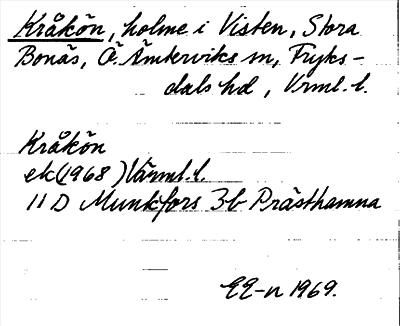 Kråkön, holme i Visten, Stora
Bonäs, Ö. Ämterviks sn, Fryks-
dals hd, Vrml. l.
Kråkön
ek (1968) Värml. l.
11 D Munkfors 3b Prästhamna
EE-n 1969.